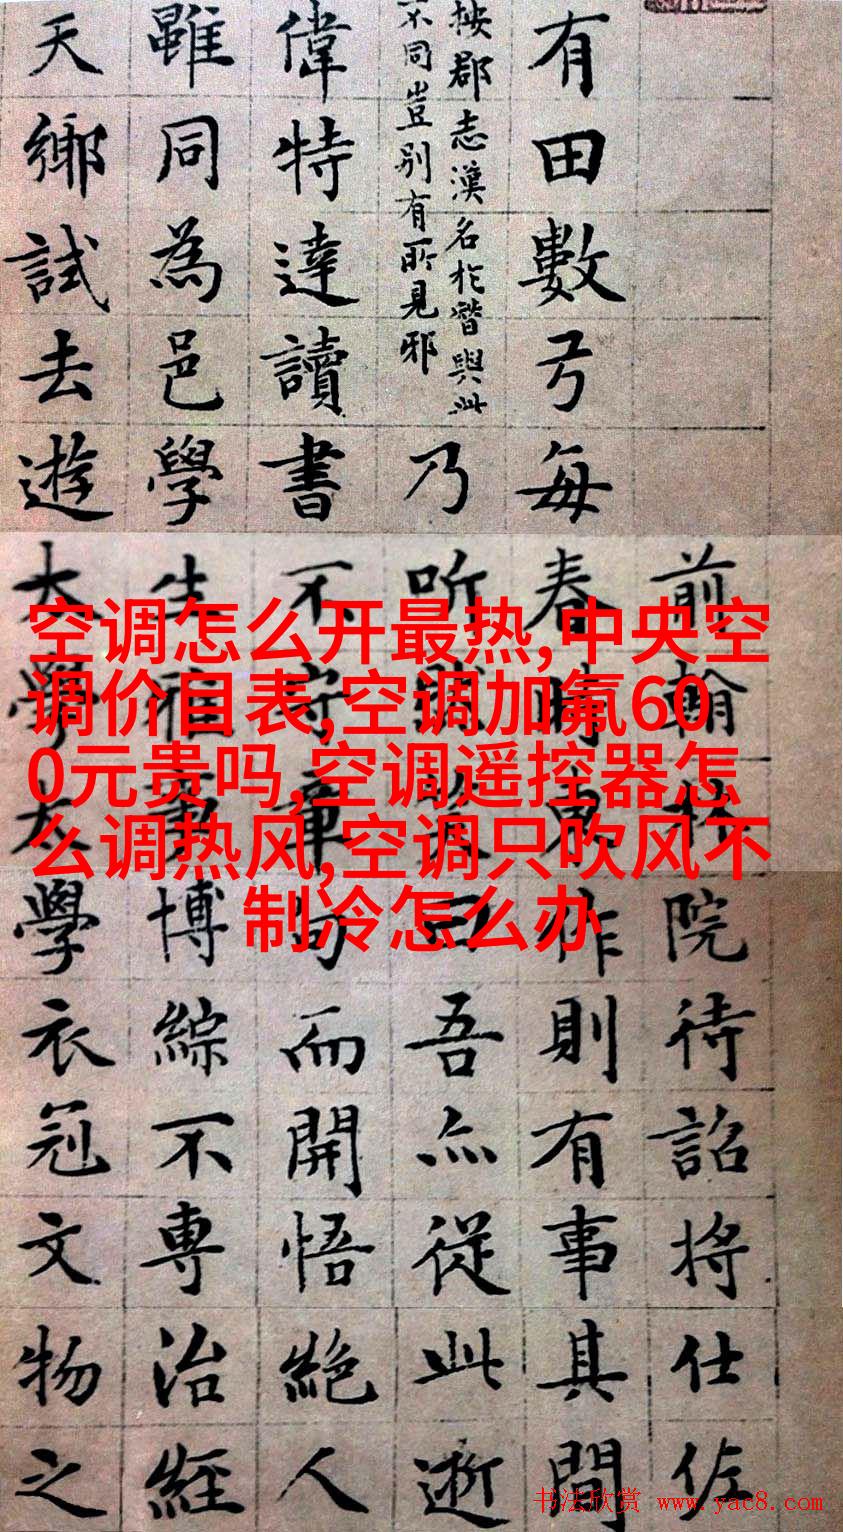 前翰林院待詔將仕佐
有田數亏每春時東作則有事其間
按郡志漢名於晉與此
不同豈別有所見邪
乃听曰吾亦從此逝
偉特達讀書不守章句而開悟絕人
雖同為邑學生雅博綜不專治經
天鄉試去遊太學太學衣冠文物之
空调怎么开最热,中央空
调价目表,空调加氟60
0元贵吗,空调遥控器怎
么调热风,空调只吹风不
制冷怎么办
书法欣赏 www.yac8.com